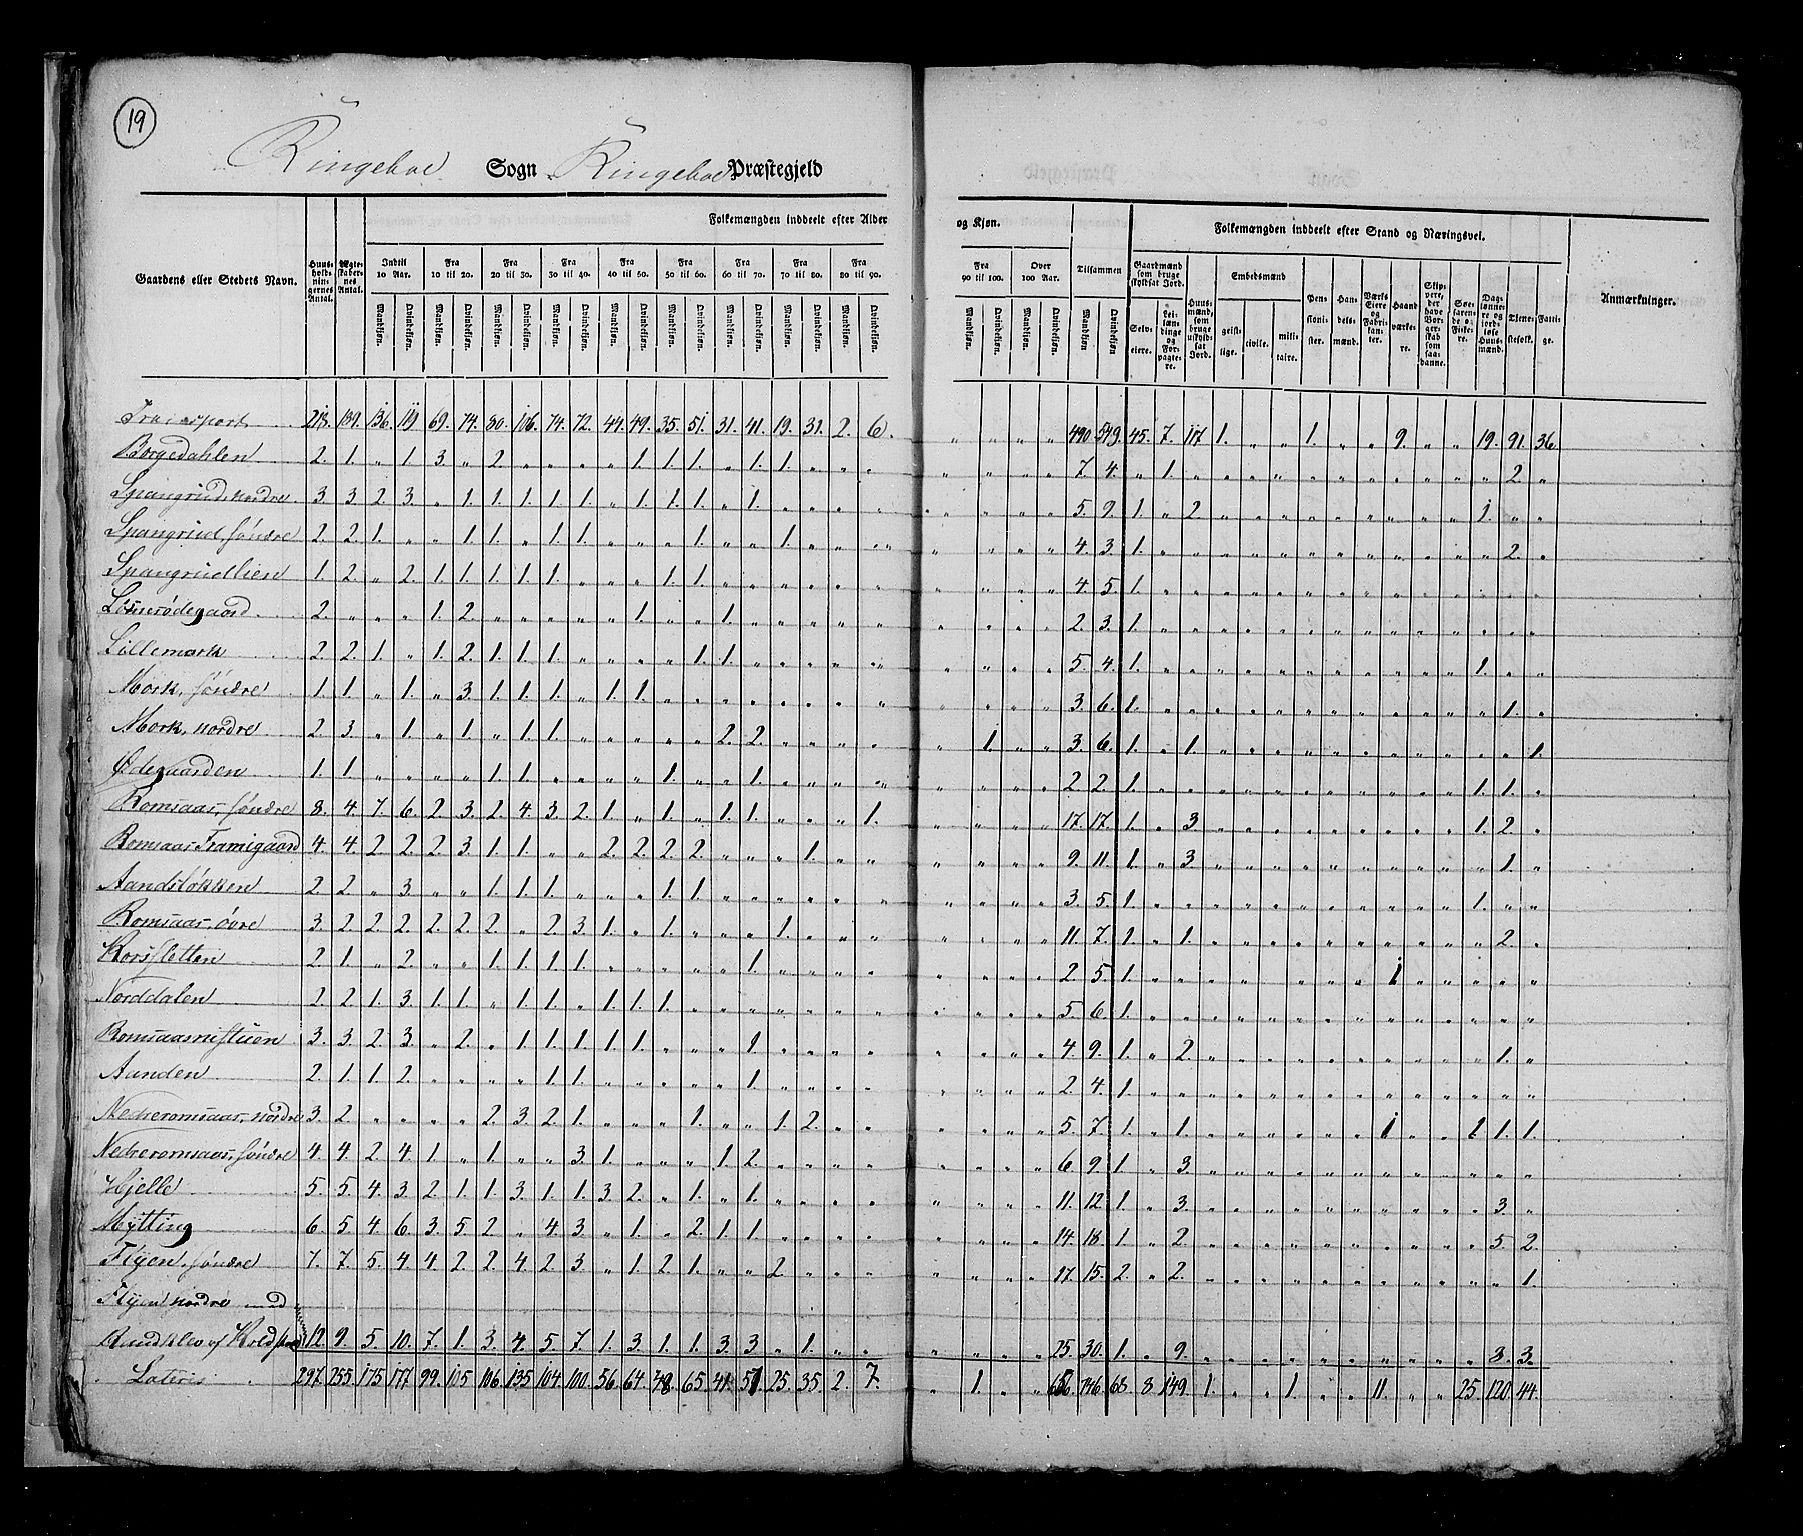 19
Ringeboe Sogn Ringeboe Præstegjeld
Gaardens eller Steders Navn. Huus-holdningernes Antal. Ægteskabernes Antal. Folkemængden inddeelt efter Alder og Kjøn. Tilsammen Folkemængden inddeelt efter Stand og Næringsvei. Anmærkninger.
Indtil 10 Aar. Fra 10 til 20. Fra 20 til 30. Fra 30 til 40. Fra 40 til 50. Fra 50 til 60. Fra 60 til 70. Fra 70 til 80. Fra 80 til 90. Fra 90 til 100. Over 100 Aar.
Mandkjøn. Qvindekjøn.
Gaardmænd som bruge skyldsat Jord. Selveiere. Leilændinge og Forpagtere. Huusmænd, som bruge uskyldsat Jord. Embedsmænd geistlige. civile. militaire. Pensionister. Handelsmænd. Værks Eiere og Fabrikanter. Haandværkere. Søefarende og Fiskere. Dagslønnere og jordløse Huusmænd. Tienestefolk. Fattige.
Transport 218. 189. 136. 119 69. 74. 80. 106. 74. 72. 44. 49. 35. 51. 31. 41. 19. 31. 2. 6. „ „ „ „ 490. 549. 45. 7. 117 1. „ „ 1. „ „ 9. „ „ 19. 91. 36
Borgedahlen 2. 1. „ 1. 3. „ 2. „ „ „ „ 1. 1. 1. „ 1. 1. „ „ „ „ „ „ „ 7. 4. „ 1. „ „ „ „ „ „ „ „ „ „ „ 2. „
Spangrud, nordre 3. 3. 2. 3. „ 1. 1. 1. 1. 1. „ 1. 1. 1. „ 1. „ „ „ „ „ „ „ „ 5. 9. 1. „ 2. „ „ „ „ „ „ „ „ „ 1. „ „
Spangrud søndre 2. 2. 1. „ „ 1. 1. „ 1. 1. „ „ „ 1. „ „ 1. „ „ „ „ „ „ „ 4. 3. 1. „ „ „ „ „ „ „ „ „ „ „ „ 2. „
Spangrudlien 1. 2. „ 2. 1. 1. 1. 1. 1. „ „ „ 1. 1. „ „ „ „ „ „ „ „ „ „ 4. 5. 1. „ „ „ „ „ „ „ „ „ „ „ „ „ „
2. „ „ „ 1. 2. „ „ „ „ „ 1. „ „ 1. „ „ „ „ „ „ „ „ „ 2. 3. 1. „ „ „ „ „ „ „ „ „ „ „ „ „ „
Lillemork 2. 2. 1. „ 1. 2. 1. 1. 1. „ „ „ „ 1. 1. „ „ „ „ „ „ „ „ „ 5. 4. 1. „ „ „ „ „ „ „ „ „ „ „ 1. „ „
Mork, søndre 1. 1. „ 1. „ 3. 1. 1. 1. „ 1. 1. „ „ „ „ „ „ „ „ „ „ „ „ 3. 6. 1. „ „ „ „ „ „ „ „ „ „ „ „ 1. „
Mork, nordre 2. 3. „ 1. „ 1. „ 1. 1. „ „ „ „ „ 2. 2. „ „ „ „ „ 1. „ „ 3. 6. 1. „ 1. „ „ „ „ „ „ „ „ „ „ „ 1.
Ødegaarden 1. 1. „ „ „ „ 1. 1. „ „ „ „ 1. „ „ 1. „ „ „ „ „ „ „ „ 2 2. 1. „ „ „ „ „ „ „ „ „ „ „ 1. 1. „
Romsaas, søndre 8. 4. 7. 6. 2. 3. 2. 4. 3. 2. 1. „ 1. „ 1. 1. „ „ „ 1. „ „ „ „ 17. 17. 1. „ 3. „ „ „ „ „ „ „ „ „ 1. 2. „
Romsaas Framigaard 4. 4. 2. 2. 2. 3. 1. 1. „ „ 2. 2. 2. 2. „ „ „ 1. „ „ „ „ „ „ 9. 11. 1. „ 3. „ „ „ „ „ „ „ „ „ „ 1. „
Aandsløkken 2. 2. „ 3. „ „ 1. 1. 1. „ „ „ 1. 1. „ „ „ „ „ „ „ „ „ „ 3. 5. 1. „ „ „ „ „ „ „ „ „ „ „ 1. „ „
Romsaas, øvre 3. 2. 2. 2. 2. 2. 2. „ 2. 3. 1. „ 1. „ „ „ 1. „ „ „ „ „ „ „ 11. 7. 1. „ 1. „ „ „ „ „ „ „ „ „ „ 2. „
Korsfletten 2. 1. „ 2. „ „ 1. 1. 1. 1. „ „ „ „ „ 1. „ „ „ „ „ „ „ „ 2. 5. 1. „ „ „ „ „ „ „ „ 1 „ „ „ „ „
Norddalen 2. 2. 1. 3. 1. 1. „ 1. 1. „ 1. 1. 1. „ „ „ „ „ „ „ „ „ „ „ 5. 6. 1. „ „ „ „ „ „ „ „ „ „ „ „ „ „
Romsaasnistuen 3. 3. 2. 3. „ 2. „ 1. 1. 1. 1. 1. „ „ „ 1. „ „ „ „ „ „ „ „ 4. 9. 1. „ 2. „ „ „ „ „ „ „ „ „ „ 1. „
Aanden 2. 1. 1. 2. „ „ „ „ 1. 1. „ „ „ „ „ 1. „ „ „ „ „ „ „ „ 2. 4. 1. „ „ „ „ „ „ „ „ „ „ „ „ „ „
Nedreromsaas, nordre 3. 2. „ „ „ „ 2. 3. 2. 1. „ „ „ 1. „ „ 1. 2. „ „ „ „ „ „ 5. 7. 1. „ 1. „ „ „ „ „ „ 1 „ „ 1. 1. 1.
Nedreromsaas, søndre 4. 4. 2. 4. 1. „ 1. „ „ 3. 1. „ „ „ 1. 2. „ „ „ „ „ „ „ „ 6. 9. 1. „ 3. „ „ „ „ „ „ „ „ „ „ „ „
Hjelle 5. 5. 4. 3. 2. 1. 1. 3. 1. 1. 3. 2. „ 1. „ 1. „ „ „ „ „ „ „ „ 11. 12. 1. „ 3. „ „ „ „ „ „ „ „ „ „ 3. „
Mytting 6. 5. 4. 6. 3. 5. 2. „ 4. 3. „ 1. „ 2. 1. 1. „ „ „ „ „ „ „ „ 14. 18. 1. „ 2. „ „ „ „ „ „ „ „ „ „ 5. 2.
Flyen, søndre 7. 7. 5. 4. 4. 2. 2. 4. 2. 3. „ 1. 2. 1. „ „ 2. „ „ „ „ „ „ „ 17. 15. 2. „ 2. „ „ „ „ „ „ „ „ „ „ „ 1.
Flyen nordre med
Rudklev af 12. 9. 5. 10. 7. 1. 3. 4. 5. 7. 1. 3. 1. 1. 3. 3. „ 1. „ „ „ „ „ „ 25. 30. 1. „ 9. „ „ „ „ „ „ „ „ „ „ 8. 3.
Lateris 297. 255. 175. 177. 99. 105. 106. 135. 104. 100. 56. 64. 48. 65. 41. 51. 25. 35. 2. 7. „ 1. „ „ 656. 746. 68. 8. 149. 1. „ „ 1. „ „ 11. „ „ 25. 120. 44.